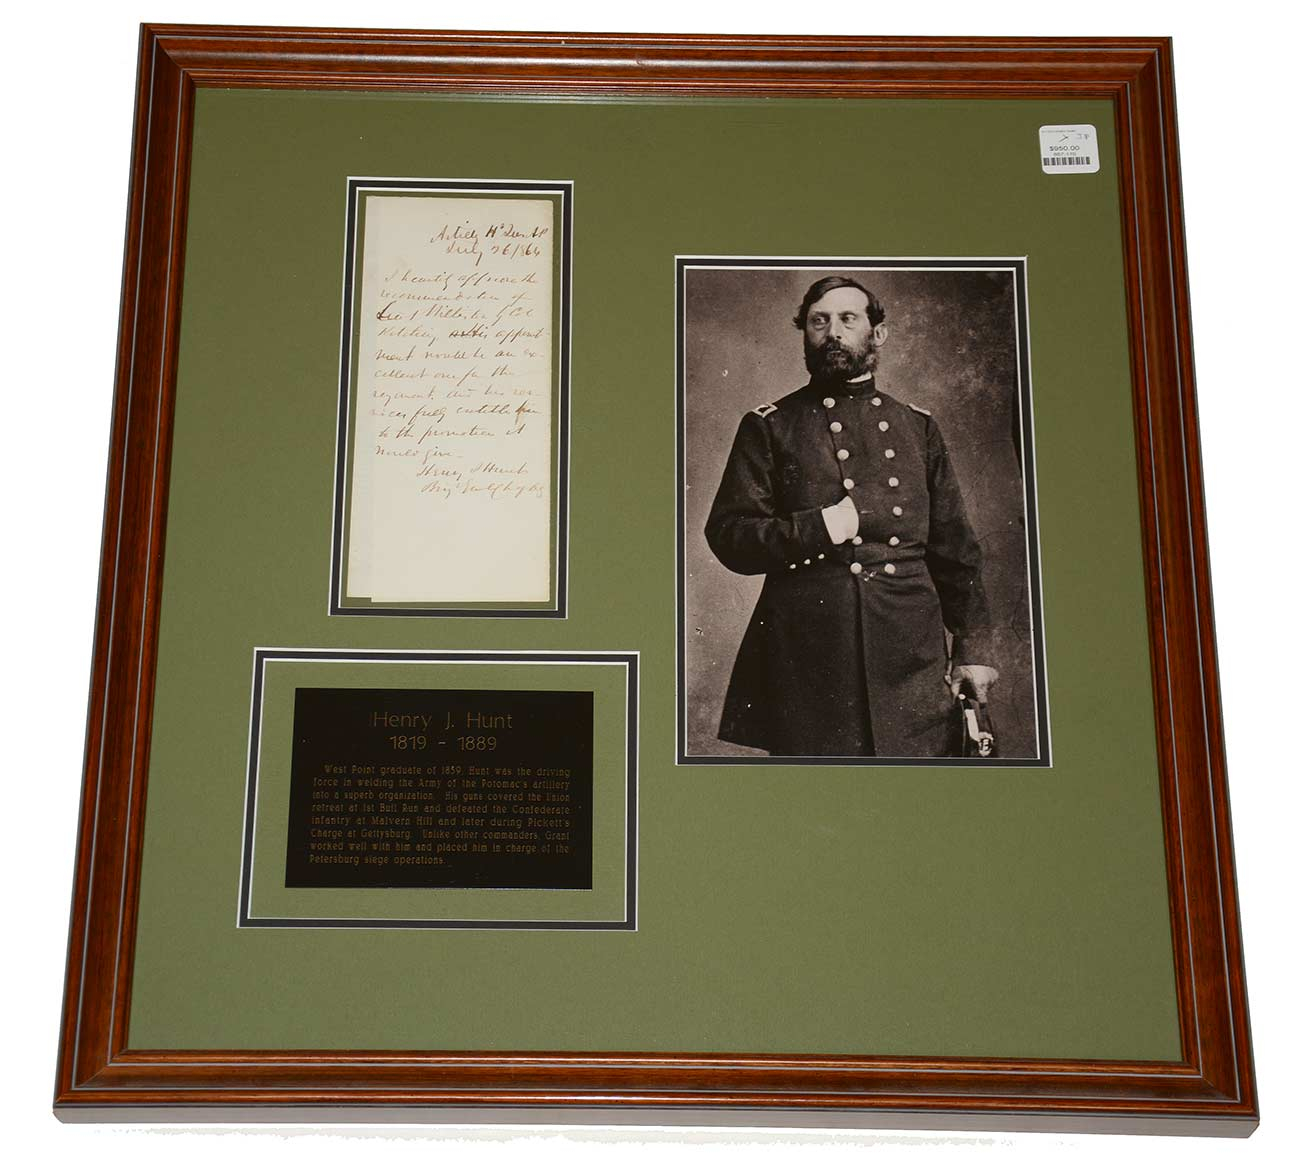 Artilly Hd Quarts
July 26/864
I heartily approve the
recommendation of
by Col
His appoint-
ment would be an ex-
cellent one for the
regiment, and his ser-
vices fully entitle him
to the promotion it
would give.
Henry J Hunt
Brig Genl Ch of Arty
Henry J. Hunt
1819 - 1889
West Point graduate of 1859, Hunt was the driving
force in welding the Army of the Potomac's artillery
into a superb organization. His guns covered the Union
retreat at 1st Bull Run and defeated the Confederate
infantry at Malvern Hill and later during Pickett's
Charge at Gettysburg. Unlike other commanders, Grant
worked well with him and placed him in charge of the
Petersburg siege operations.
$950.00